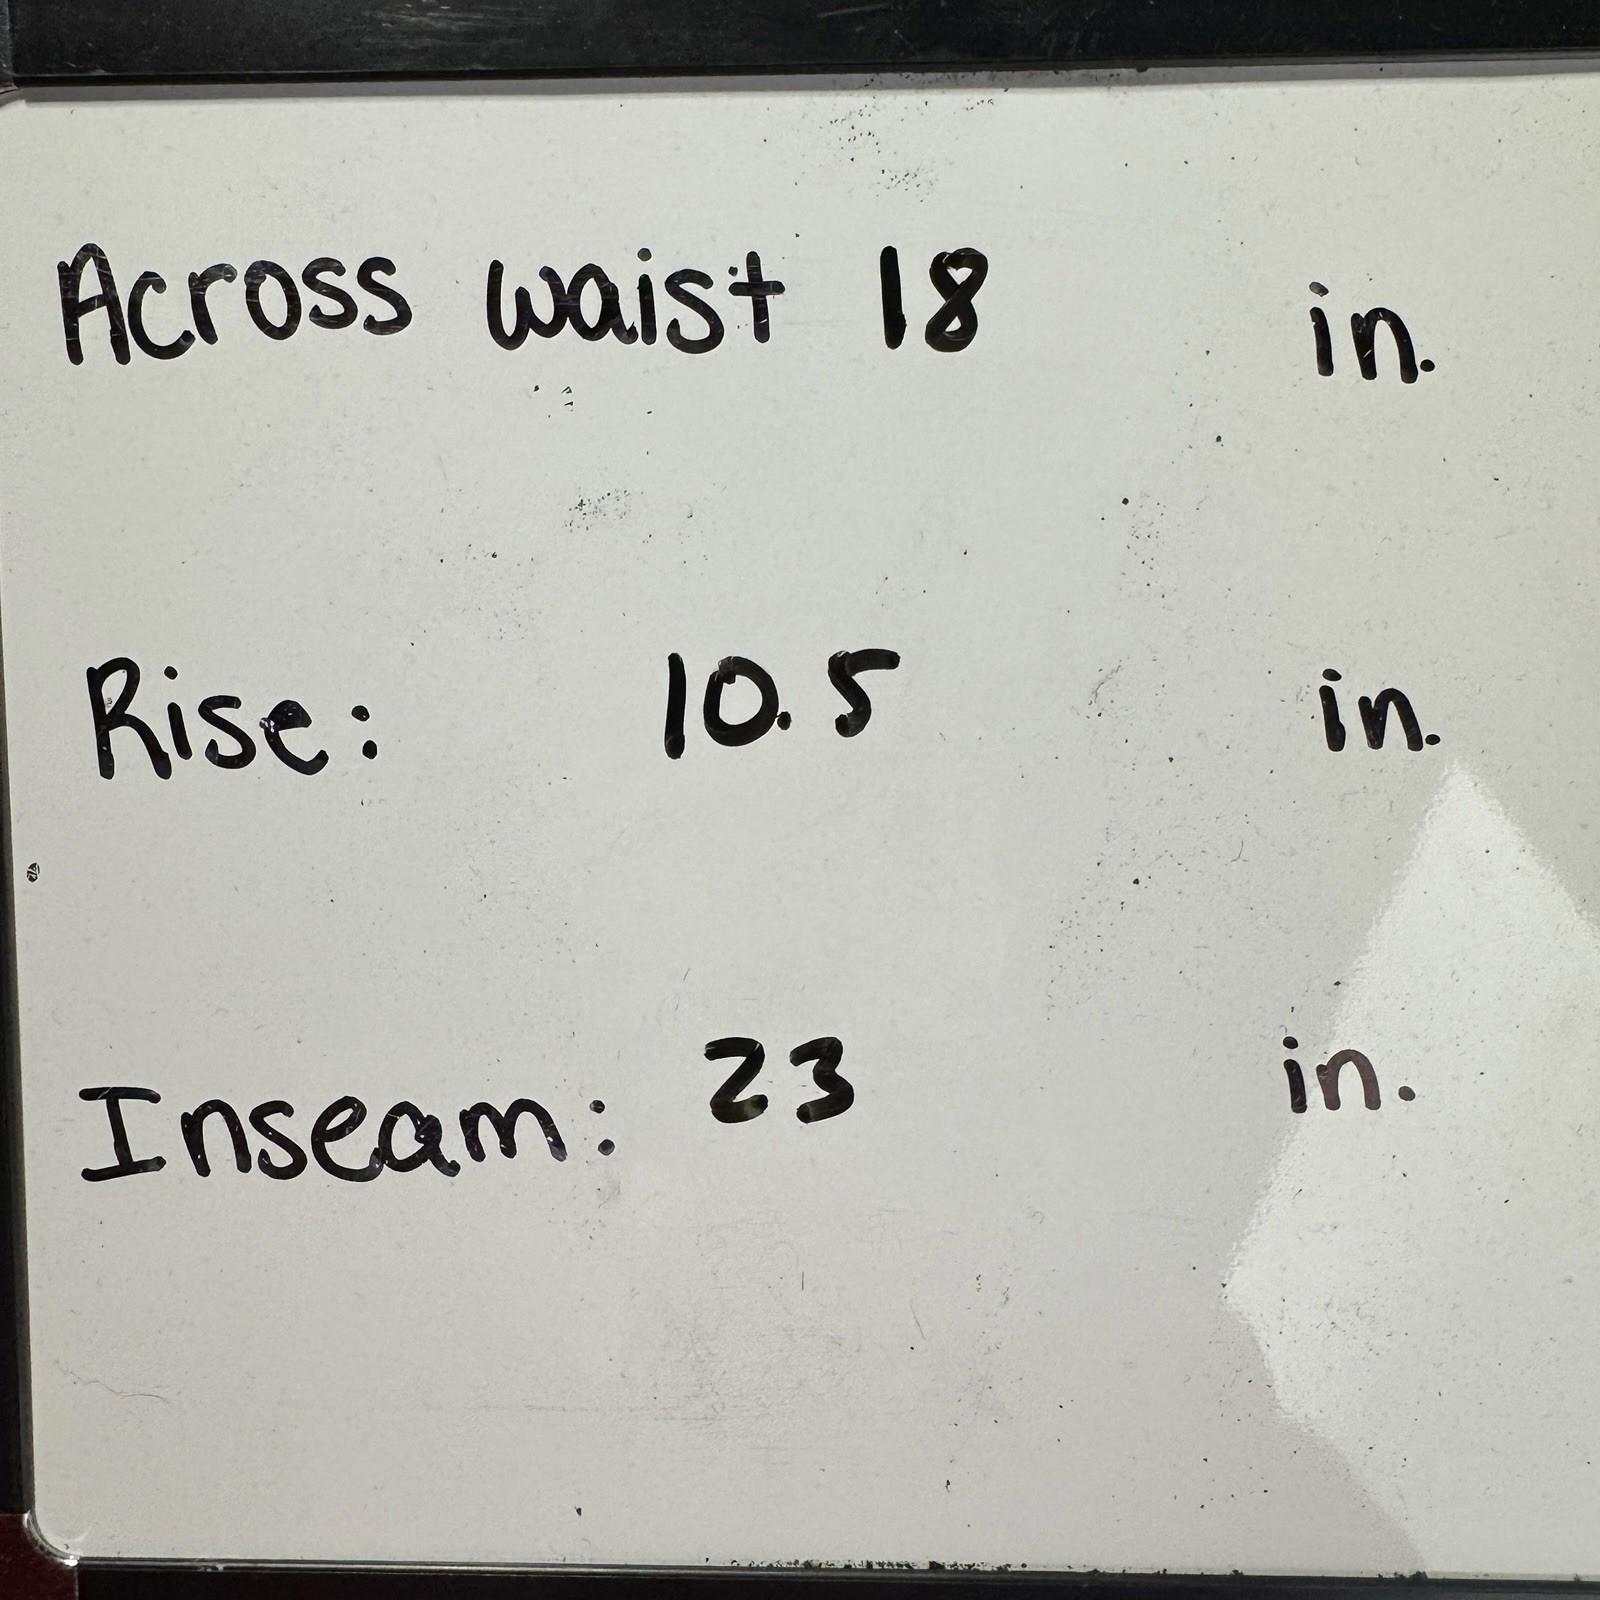 Across waist 18 in.
Rise: 10.5 in.
Inseam: 23 in.